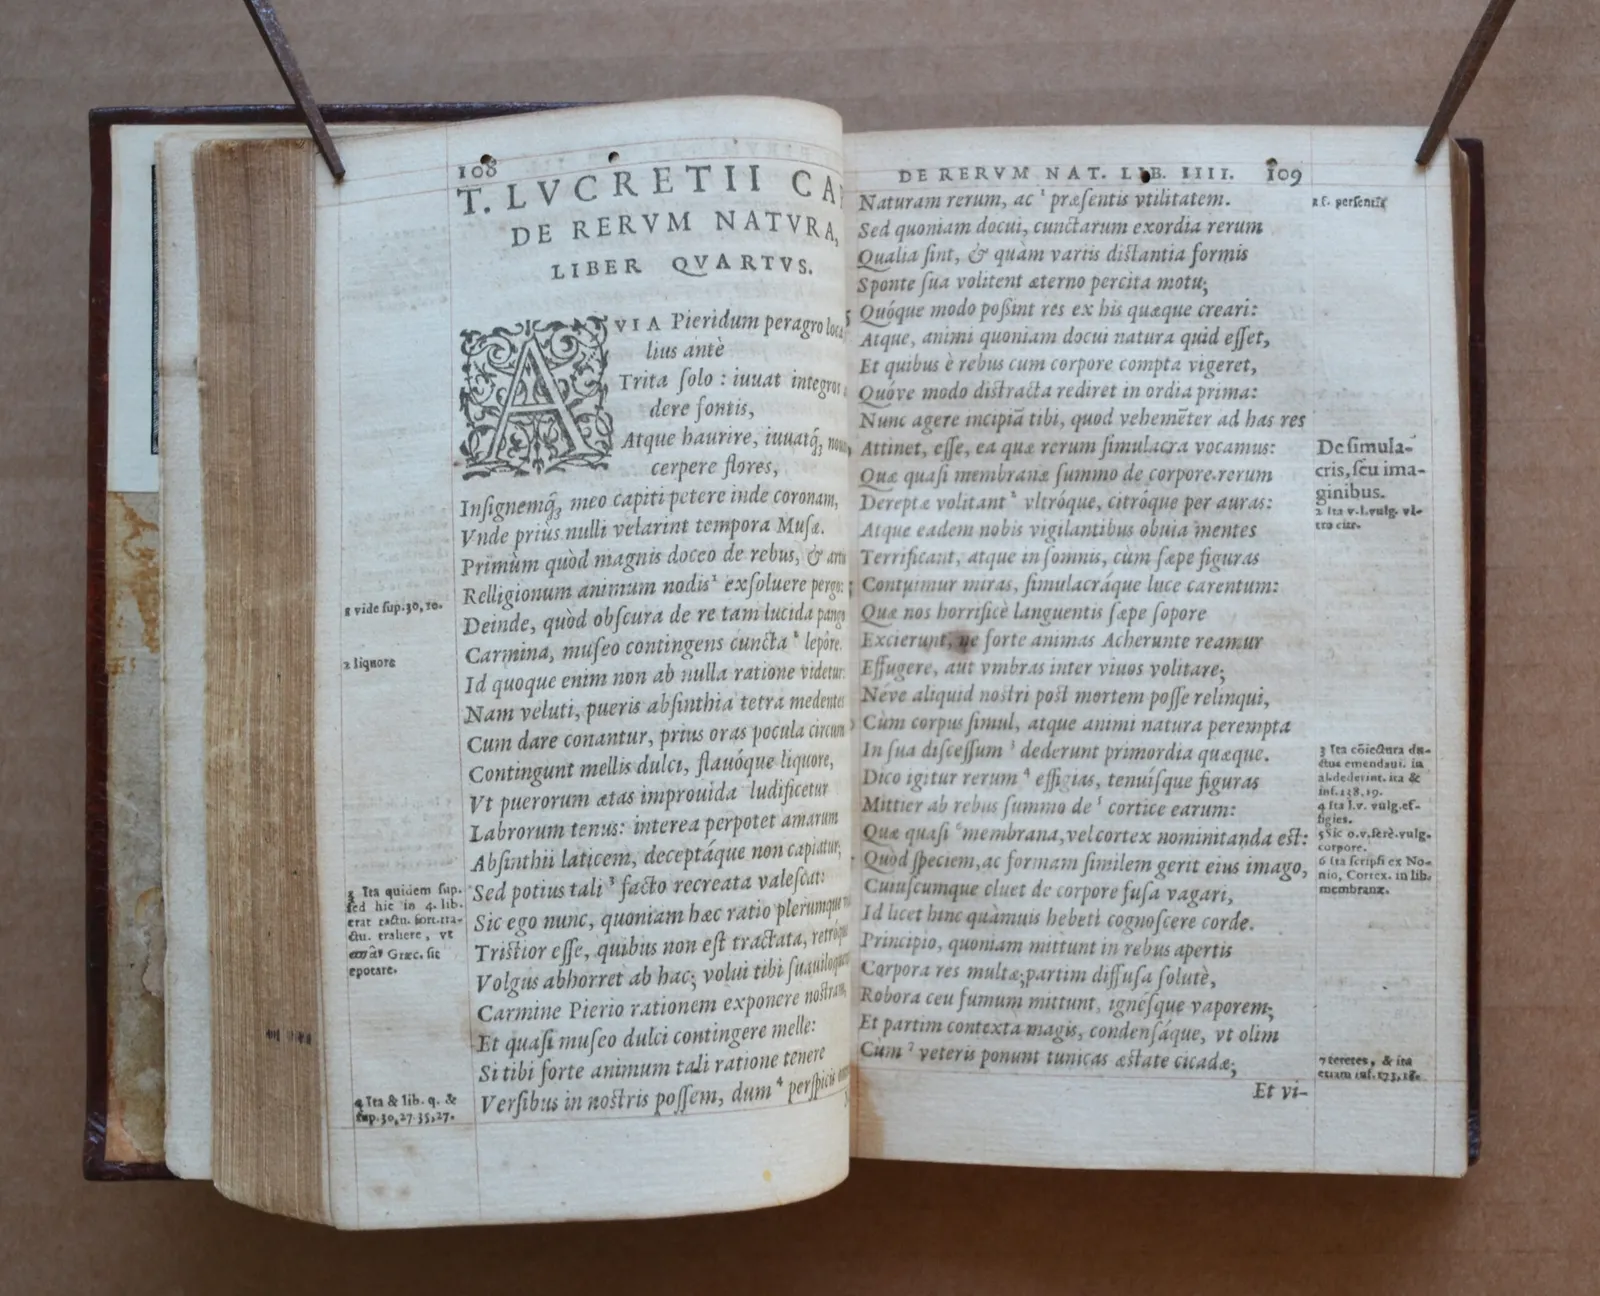 108
T. LVCRETII CA
DE RERVM NATVRA,
LIBER QVARTVS.
AVIA Pieridum peragro loca
lius antè
Trita ſolo: iuuat integros
dere fontis,
Atque haurire, iuuatq́ʒ nou
cerpere flores,
Inſignemq́ʒ meo capiti petere inde coronam,
Vnde prius nulli velarint tempora Muſæ.
Primùm quòd magnis doceo de rebus, & artis
Relligionum animum nodis¹ exſoluere pergo:
Deinde, quòd obſcura de re tam lucida pango
Carmina, muſeo contingens cuncta ² lepôre.
Id quoque enim non ab nulla ratione videtur.
Nam veluti, pueris abſinthia tetra medentes
Cum dare conantur, prius oras pocula circum
Contingunt mellis dulci, flauóque liquore,
Vt puerorum ætas improuida ludificetur
Labrorum tenus: interea perpotet amarum
Abſinthii laticem, deceptáque non capiatur,
Sed potius tali ³ facto recreata valeſcat:
Sic ego nunc, quoniam hæc ratio plerumque
Triſtior eſſe, quibus non eſt tractata, retróque
Volgus abhorret ab hac; volui tibi ſuauiloquen
Carmine Pierio rationem exponere noſtram,
Et quaſi muſeo dulci contingere melle:
Si tibi forte animum tali ratione tenere
Verſibus in noſtris poſſem, dum ⁴ perſpicis
1 vide ſup.30, 10.
2 liquore
3 Ita quidem ſup.
ſed hic in 4. lib.
erat
ctu. trahere, vt
Græc. ſic
epotare.
4 Ita & lib. q. &
ſup.30,27.35,27.
DE RERVM NAT. LIB. IIII. 109
Naturam rerum, ac ¹ præſentis vtilitatem.
Sed quoniam docui, cunctarum exordia rerum
Qualia ſint, & quàm variis diſtantia formis
Sponte ſua volitent æterno percita motu;
Quóque modo poſſint res ex his quæque creari:
Atque, animi quoniam docui natura quid eſſet,
Et quibus è rebus cum corpore compta vigeret,
Quóve modo diſtracta rediret in ordia prima:
Nunc agere incipiā tibi, quod vehemēter ad has res
Attinet, eſſe, ea quæ rerum ſimulacra vocamus:
Quæ quaſi membranæ ſummo de corpore rerum
Dereptæ volitant ² vltróque, citróque per auras:
Atque eadem nobis vigilantibus obuia mentes
Terrificant, atque in ſomnis, cùm ſæpe figuras
Contuimur miras, ſimulacráque luce carentum:
Quæ nos horrificè languentis ſæpe ſopore
Excierunt, ne forte animas Acherunte reamur
Effugere, aut vmbras inter viuos volitare;
Néve aliquid noſtri poſt mortem poſſe relinqui,
Cùm corpus ſimul, atque animi natura perempta
In ſua diſceſſum ³ dederunt primordia quæque.
Dico igitur rerum ⁴ effigias, tenuíſque figuras
Mittier ab rebus ſummo de ⁵ cortice earum:
Quæ quaſi ⁶membrana, vel cortex nominitanda eſt:
Quòd ſpeciem, ac formam ſimilem gerit eius imago,
Cuiuſcumque cluet de corpore fuſa vagari,
Id licet hinc quàmuis hebeti cognoſcere corde.
Principio, quoniam mittunt in rebus apertis
Corpora res multæ; partim diffuſa ſolutè,
Robora ceu fumum mittunt, igneſque vaporem;
Et partim contexta magis, condenſáque, vt olim
Cùm ⁷ veteris ponunt tunicas æſtate cicadæ;
Et vi-
1 f. perſentis
De ſimula-
cris, ſeu ima-
ginibus.
2 Ita v.l.vulg. vl-
tro citr.
3 Ita cōiectura du-
ctus emendaui. in
al.dederint. ita &
inf.138,19.
4 Ita l.v. vulg.ef-
figies.
5 Sic o.v.ferè.vulg.
corpore.
6 Ita ſcripſi ex No-
nio, Cortex. in lib.
membranæ.
7 teretes, & ita
etiam inf.173,18.